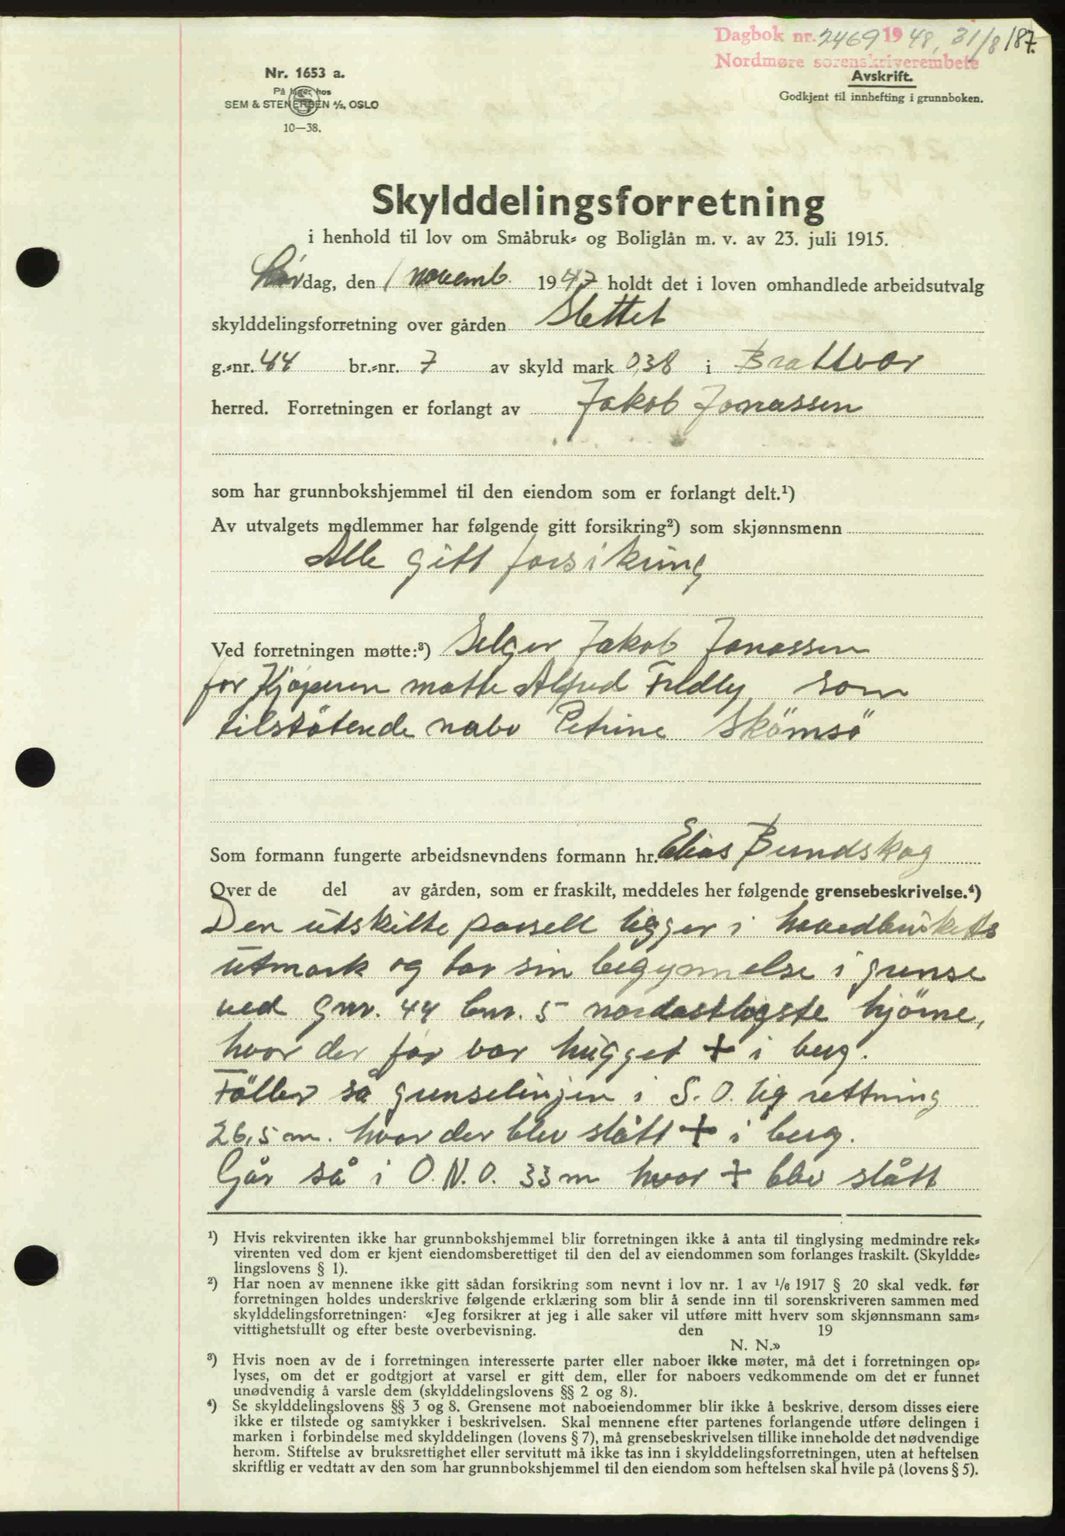 Dagbok nr. 2469 1948, 31/8 187.
Nordmøre sorenskriverembete
Avskrift.
Godkjent til innhefting i grunnboken.
Nr. 1653 a.
På lager hos
SEM & STENERSEN A/S, OSLO
10—38.
Skylddelingsforretning
i henhold til lov om Småbruk- og Boliglån m. v. av 23. juli 1915.
Lørdag, den 1 novemb. 1947 holdt det i loven omhandlede arbeidsutvalg
skylddelingsforretning over gården Slettet
g.-nr. 44 br.-nr. 7 av skyld mark 0,38 i Brattvær
herred. Forretningen er forlangt av Jakob Jonassen
som har grunnbokshjemmel til den eiendom som er forlangt delt.¹)
Av utvalgets medlemmer har følgende gitt forsikring²) som skjønnsmenn
Alle gitt forsikring
Ved forretningen møtte:³) Selger Jakob Jonassen
for Kjøperen møtte Alfred Fredly som
tilstøtende nabo Petrine Skömsö
Som formann fungerte arbeidsnevndens formann hr. Elias Bundskog
Over de del av gården, som er fraskilt, meddeles her følgende grensebeskrivelse.⁴)
Den utskilte parsell ligger i hovedbrukets
utmark og tar sin begynnelse i grense
ved gnr. 44 bnr. 5 nordøstligste hjörne,
hvor der før var hugget + i berg.
Föller så grenselinjen i S. O. lig rettning
26,5 m. hvor der blev slått + i berg.
Går så i O. N. O. 33 m hvor + blev slått
¹) Hvis rekvirenten ikke har grunnbokshjemmel blir forretningen ikke å anta til tinglysing medmindre rek-
virenten ved dom er kjent eiendomsberettiget til den del av eiendommen som forlanges fraskilt. (Skyldde-
lingslovens § 1).
²) Har noen av mennene ikke gitt sådan forsikring som nevnt i lov nr. 1 av 1/6 1917 § 20 skal vedk. før
forretningen holdes underskrive følgende erklæring som blir å sende inn til sorenskriveren sammen med
skylddelingsforretningen: «Jeg forsikrer at jeg i alle saker vil utføre mitt hverv som skjønnsmann sam-
vittighetsfullt og efter beste overbevisning. den 19
N. N.»
³) Hvis noen av de i forretningen interesserte parter eller naboer ikke møter, må det i forretningen op-
lyses, om det er godtgjort at varsel er gitt dem, eller for naboers vedkommende om det er funnet
unødvendig å varsle dem (skylddelingslovens §§ 2 og 8).
⁴) Se skylddelingslovens §§ 3 og 8. Grensene mot naboeiendommer blir ikke å beskrive, dersom disses eiere
ikke er tilstede og samtykker i beskrivelsen. Skal mennene efter partenes forlangende utføre delingen i
marken i forbindelse med skylddelingen (lovens § 7), må grensebeskrivelsen tillike inneholde det nødvendige
herom. Stiftelse av bruksrettighet eller servitutt må ikke tas inn i skylddelingsforretningen, uten at heftelsen
skriftlig er vedtatt av den som har grunnbokshjemmel til den eiendom som heftelsen skal hvile på (lovens § 5).